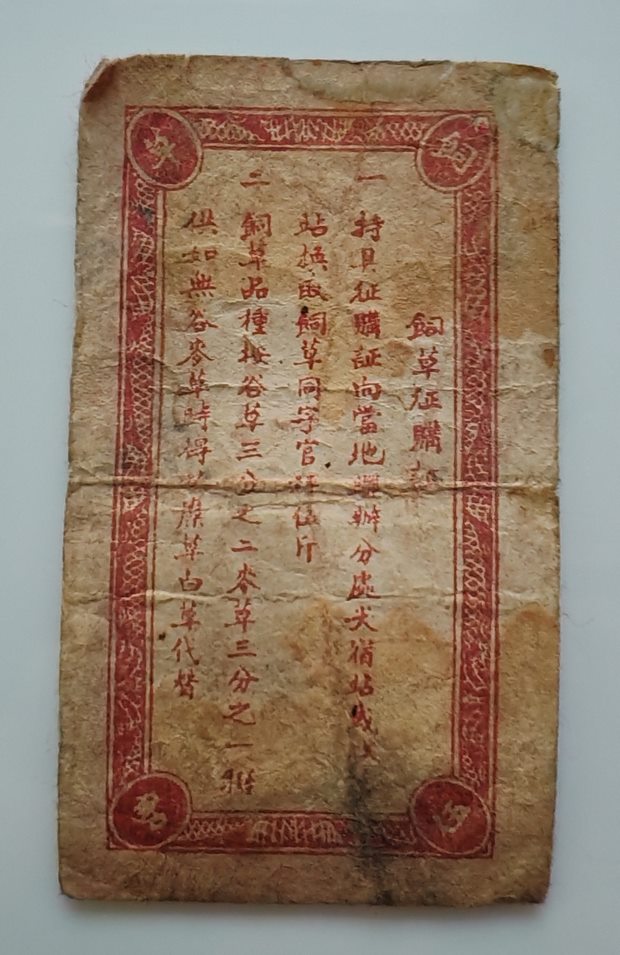 飼草征購証
一 持具征購証向當地 辦分處大宿站或
站換取飼草同字官秤伍斤
二 飼草品種按谷草三分之二麥草三分之一搭
供如無谷麥草時得以 草白草代替
飼
芻